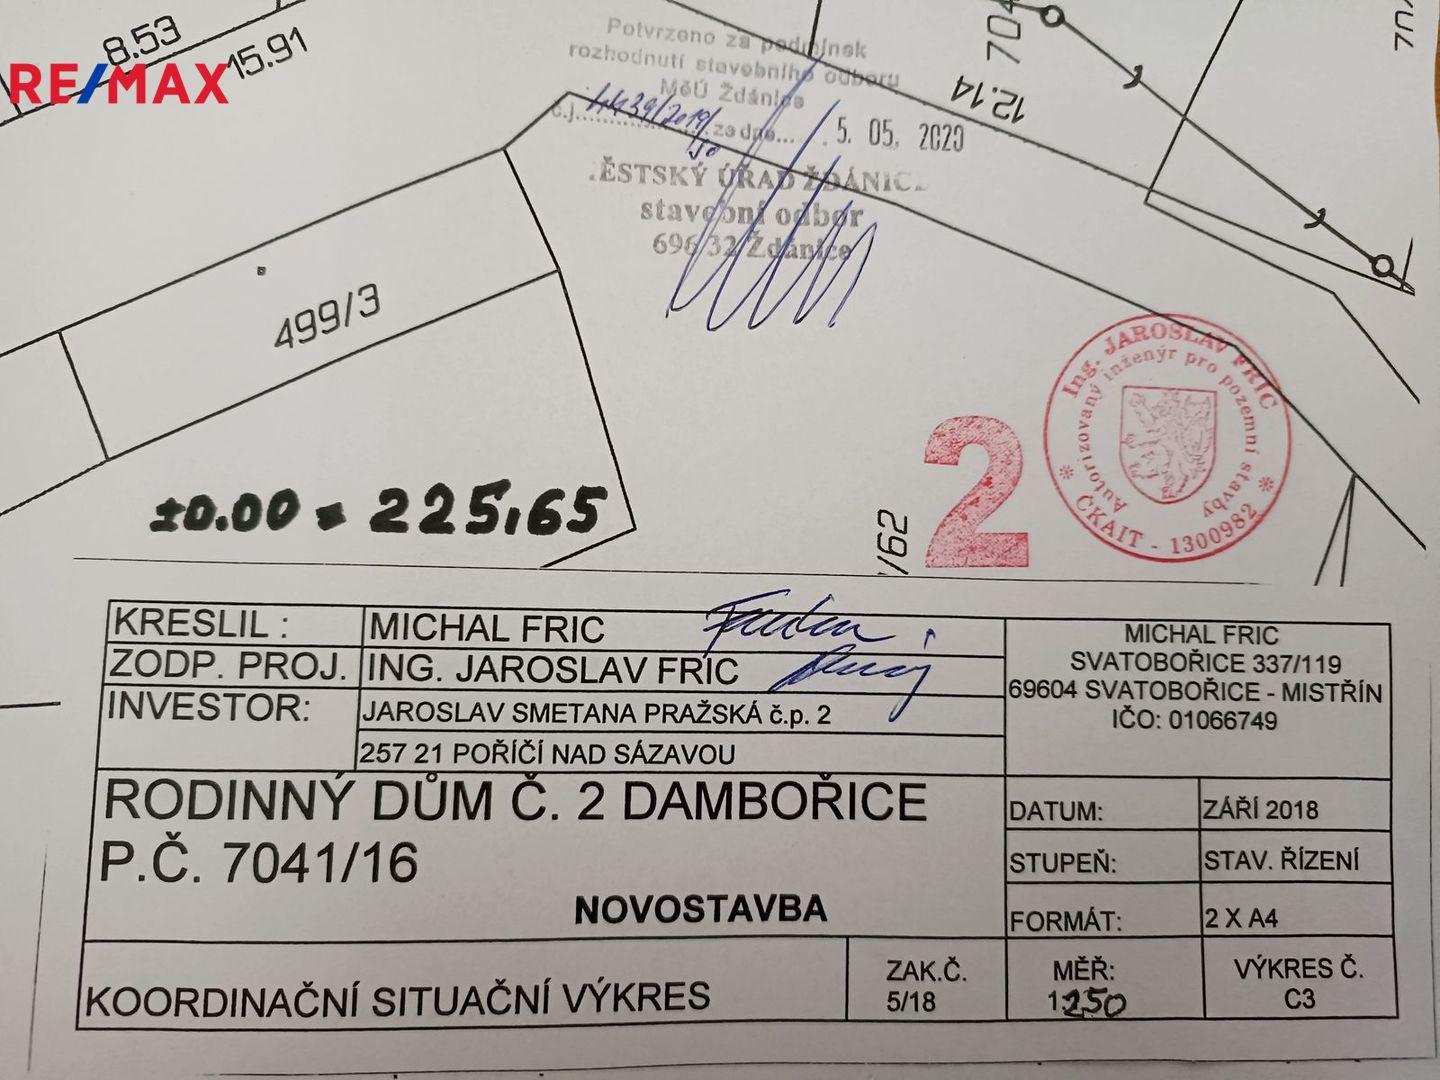 8.53
15.91
RE/MAX
Potvrzeno za podmínek
rozhodnutí stavebního odboru
MěÚ Ždánice
č.j. 4439/2019/ za dne 5. 05. 2020
MĚSTSKÝ ÚŘAD ŽDÁNICE
stavební odbor
696 32 Ždánice
704
12.14
70
499/3
±0.00 = 225,65
/62
2
Ing. JAROSLAV FRIC
Autorizovaný inženýr pro pozemní stavby
* ČKAIT - 1300982 *
KRESLIL : MICHAL FRIC
ZODP. PROJ. ING. JAROSLAV FRIC
INVESTOR: JAROSLAV SMETANA PRAŽSKÁ č.p. 2
257 21 POŘÍČÍ NAD SÁZAVOU
MICHAL FRIC
SVATOBOŘICE 337/119
69604 SVATOBOŘICE - MISTŘÍN
IČO: 01066749
RODINNÝ DŮM Č. 2 DAMBOŘICE
P.Č. 7041/16
NOVOSTAVBA
DATUM: ZÁŘÍ 2018
STUPEŇ: STAV. ŘÍZENÍ
FORMÁT: 2 X A4
KOORDINAČNÍ SITUAČNÍ VÝKRES
ZAK.Č.
5/18
MĚŘ:
1:250
VÝKRES Č.
C3